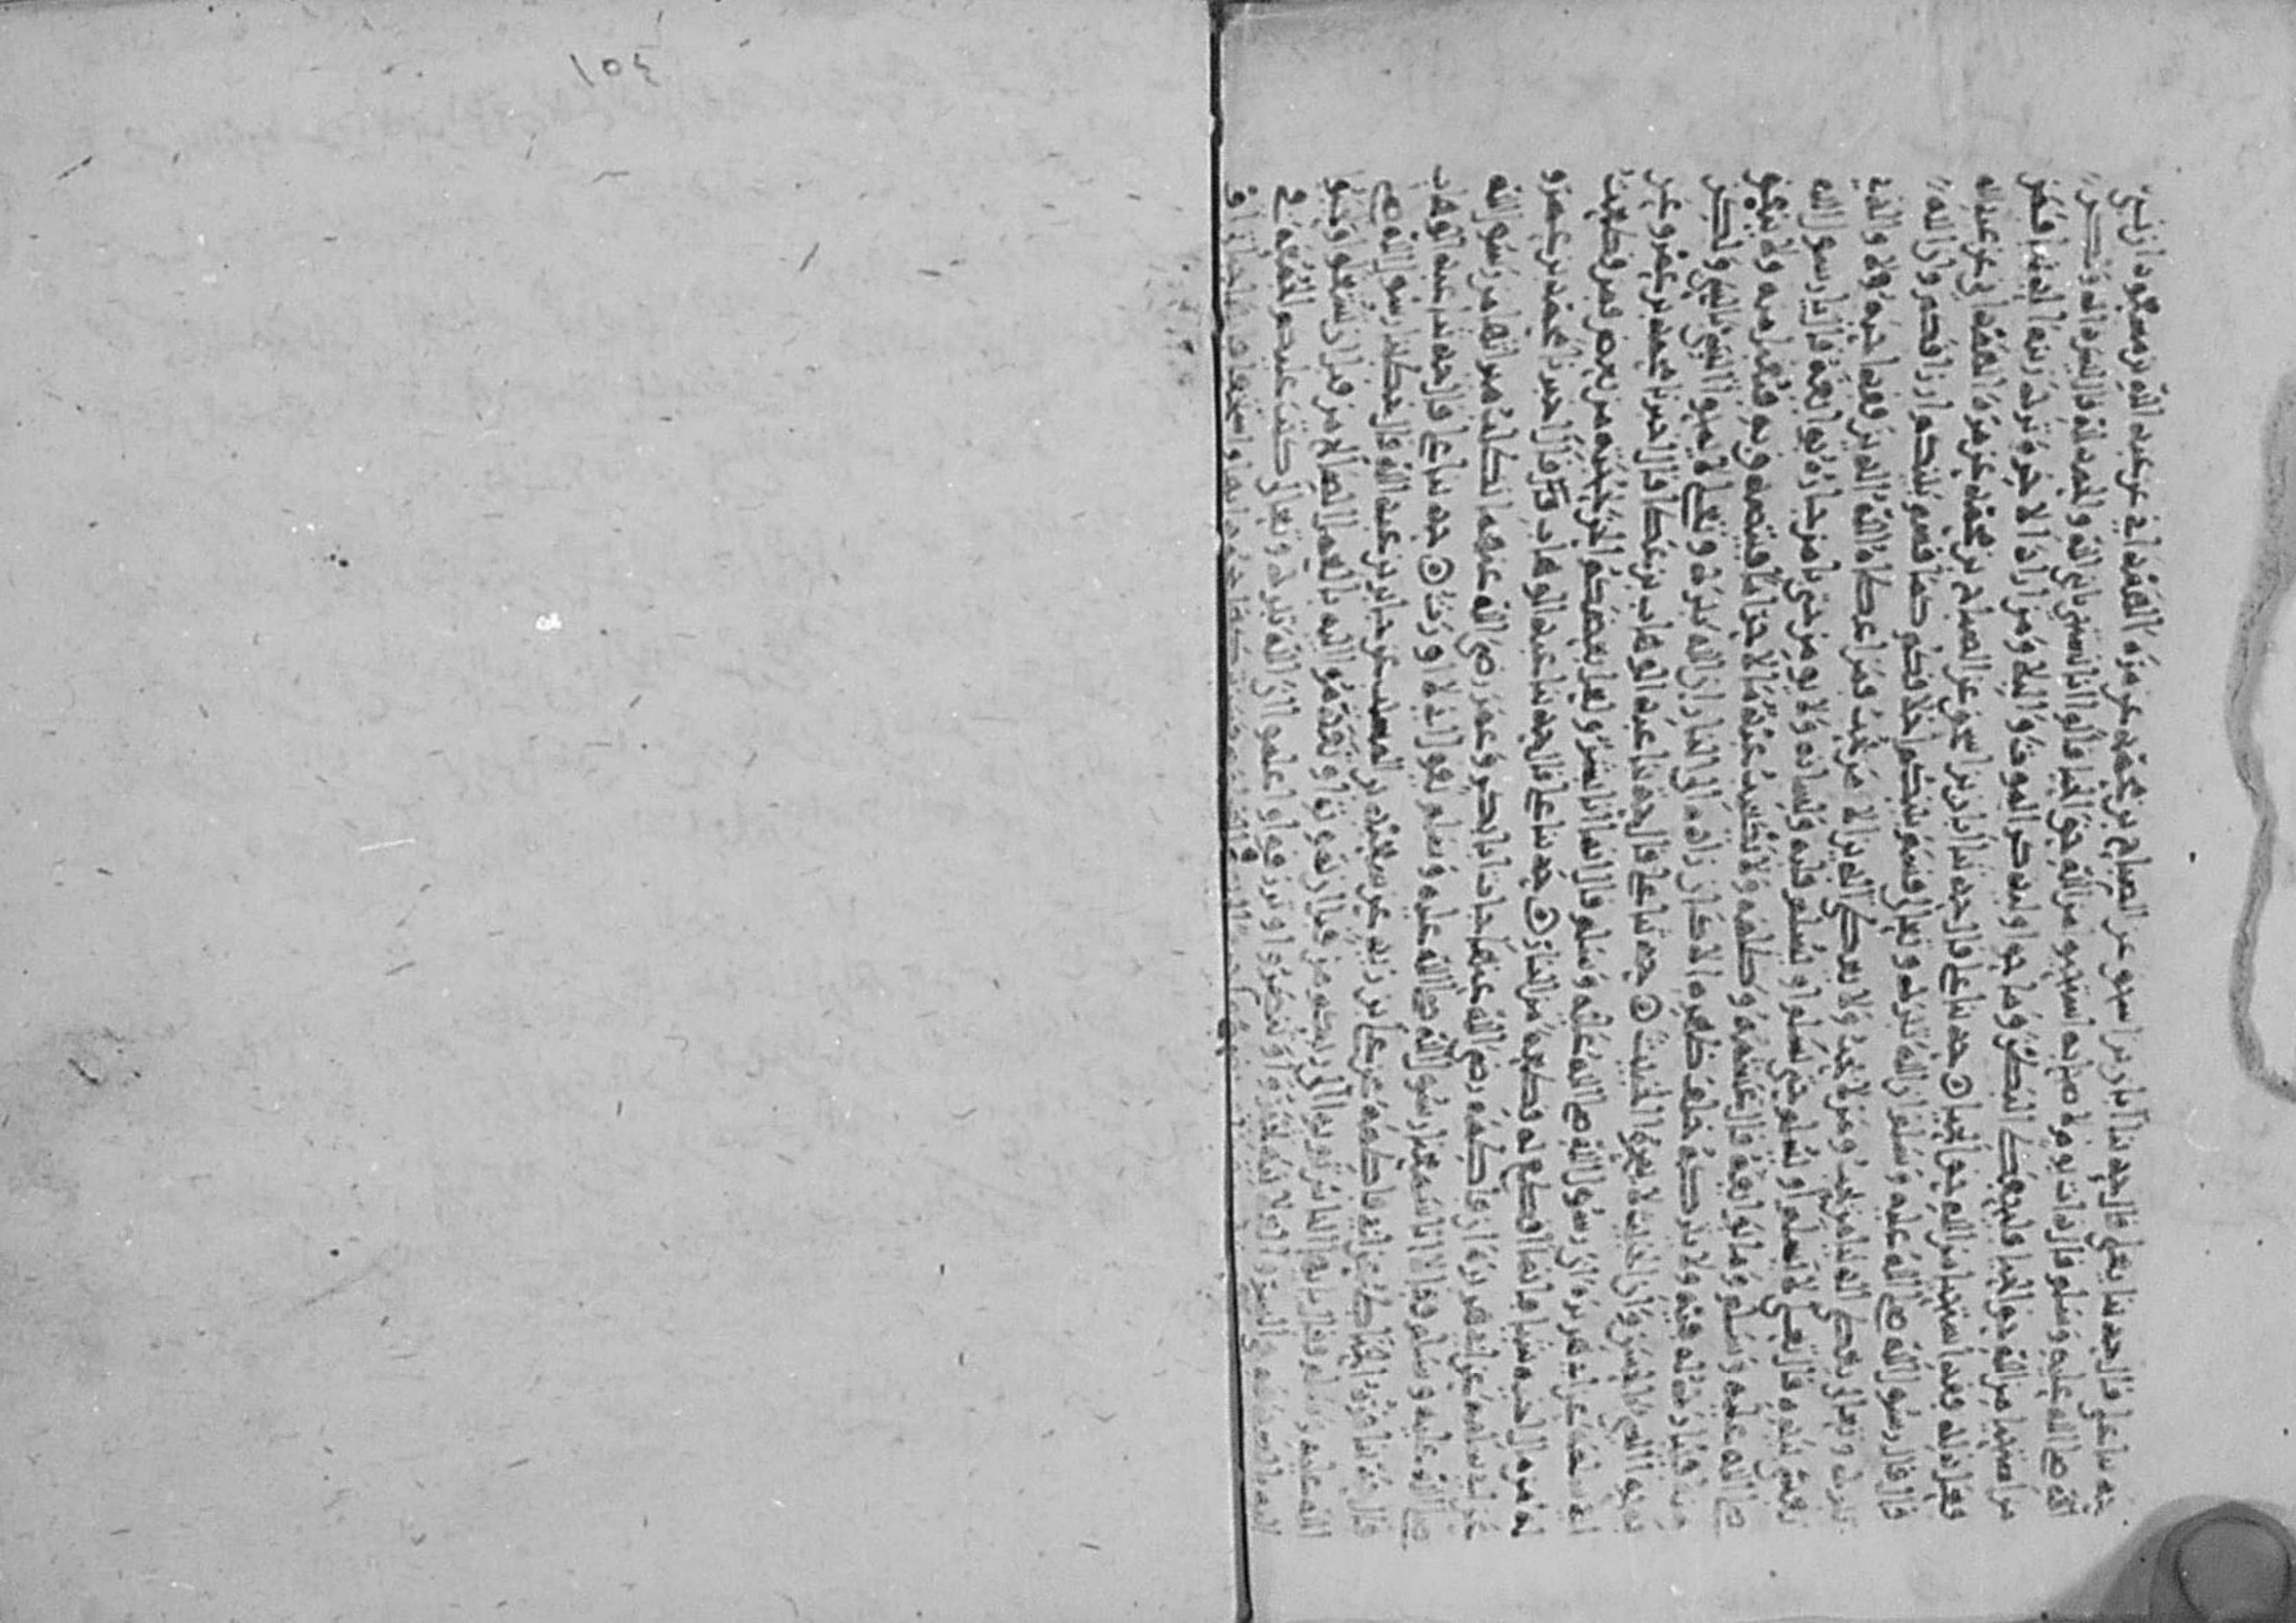 ١٥٤
حدثنا علي قال حدثنا يعلى قال حدثنا ابان بن اسحق عن الصباح بن محمد عن مرة الهمداني عن عبد الله بن مسعود ان نبي
الله صلى الله عليه وسلم قال ذات يوم لاصحابه استحيوا من الله حق الحيا قالوا انا نستحي يا نبي الله والحمد لله قال ليس ذلك ولكن
من استحيا من الله حق الحيا فليحفظ البطن وما حوا وليذكر الموت والبلا ومن اراد الاخرة ترك زينة الدنيا فمن
فعل ذلك فقد استحيا من الله حق الحيا حدثنا علي قال حدثنا ابان بن اسحق عن الصباح بن محمد عن مرة الهمداني عن عبد الله
قال قال رسول الله صلى الله عليه وسلم ان الله تبرك وتعلى قسم بينكم اخلاقكم كما قسم بينكم ارزاقكم وان الله
تبرك وتعلى يعطي الدنيا من يحب ومن لا يحب ولا يعطي الدين الا من يحب فمن اعطاه الله الدين فقد احبه ولا والذي
نفسي بيده قال يعلى لا يسلم او يسلم حتى يسلم او يسلم قلبه ولسانه ولا يومن حتى يامن جاره بوائقه قال يا رسول الله
صلى الله عليه وسلم وما بوائقه قال غشمه وظلمه ولا يكسب عبد مالا حراما فيتصدق به فيقبل منه ولا ينفق
منه فيبارك له فيه ولا يتركه خلف ظهره الا كان زاده الى النار ان الله تبرك وتعلى لا يمحو السيئ بالسيئ ولكن
يمحو السيئ بالحسن وان الخبيث لا يمحو الخبيث حدثنا علي قال حدثنا عبد الوهاب بن عطا قال اخبرنا محمد بن عمرو عن
ابي سلمة عن ابي هريرة ان رسول الله صلى الله عليه وسلم قال انما انا بشر ولعل بعضكم الحن بحجته من بعض فمن قطعت
له من حق اخيه شيئا فانما اقطع له قطعة من النار حدثنا علي قال حدثنا عبد الوهاب قال اخبرنا محمد بن عمرو
عن ابي سلمة عن ابي هريرة ان فاطمة رضي الله عنها جات ابا بكر وعمر رضي الله عنهما تطلب ميراثها من رسول الله
صلى الله عليه وسلم فقالا انا سمعنا رسول الله صلى الله عليه وسلم يقول اني لا اورث حدثنا علي قال حدثنا عبد الوهاب
قال عن علي بن زيد عن سعيد بن المسيب عن جابر بن عبد الله قال خطبنا رسول الله صلى
الله عليه وسلم فقال يايها الناس توبوا الى ربكم من قبل ان تموتوا وتقدموا اليه بالعمل الصالح من قبل ان تشغلوا
في السر والعلانية وتنصروا وترزقوا واعلموا ان الله تبرك وتعلى كتب عليكم الجمعة في